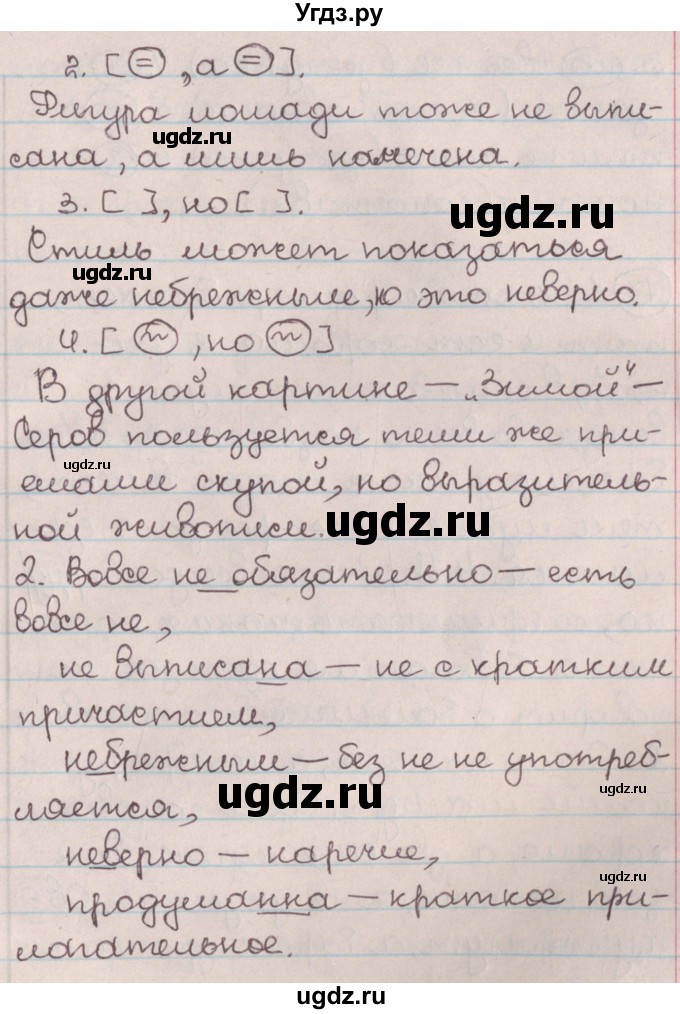 Угдз.ру
2. [ = , а = ].
Фигура лошади тоже не выпи-
сана, а лишь намечена.
ugdz.ru
ugdz.ru
3. [ ], но [ ].
Стиль может показаться
ugdz.ru
даже небрежным, но это неверно.
4. [ ~ , но ~ ]
В другой картине — „Зимой“ —
Серов пользуется теми же при-
ugdz.ru
ёмами скупой, но выразитель-
ной живописи.
ugdz.ru
2. Вовсе не обязательно — есть
вовсе не,
не выписана — не с кратким
причастием,
небрежным — без не не употреб-
ugdz.ru
ugdz.ru
ляется,
неверно — наречие,
ugdz.ru
продуманна — краткое при-
лагательное.
ugdz.ru
ugdz.ru